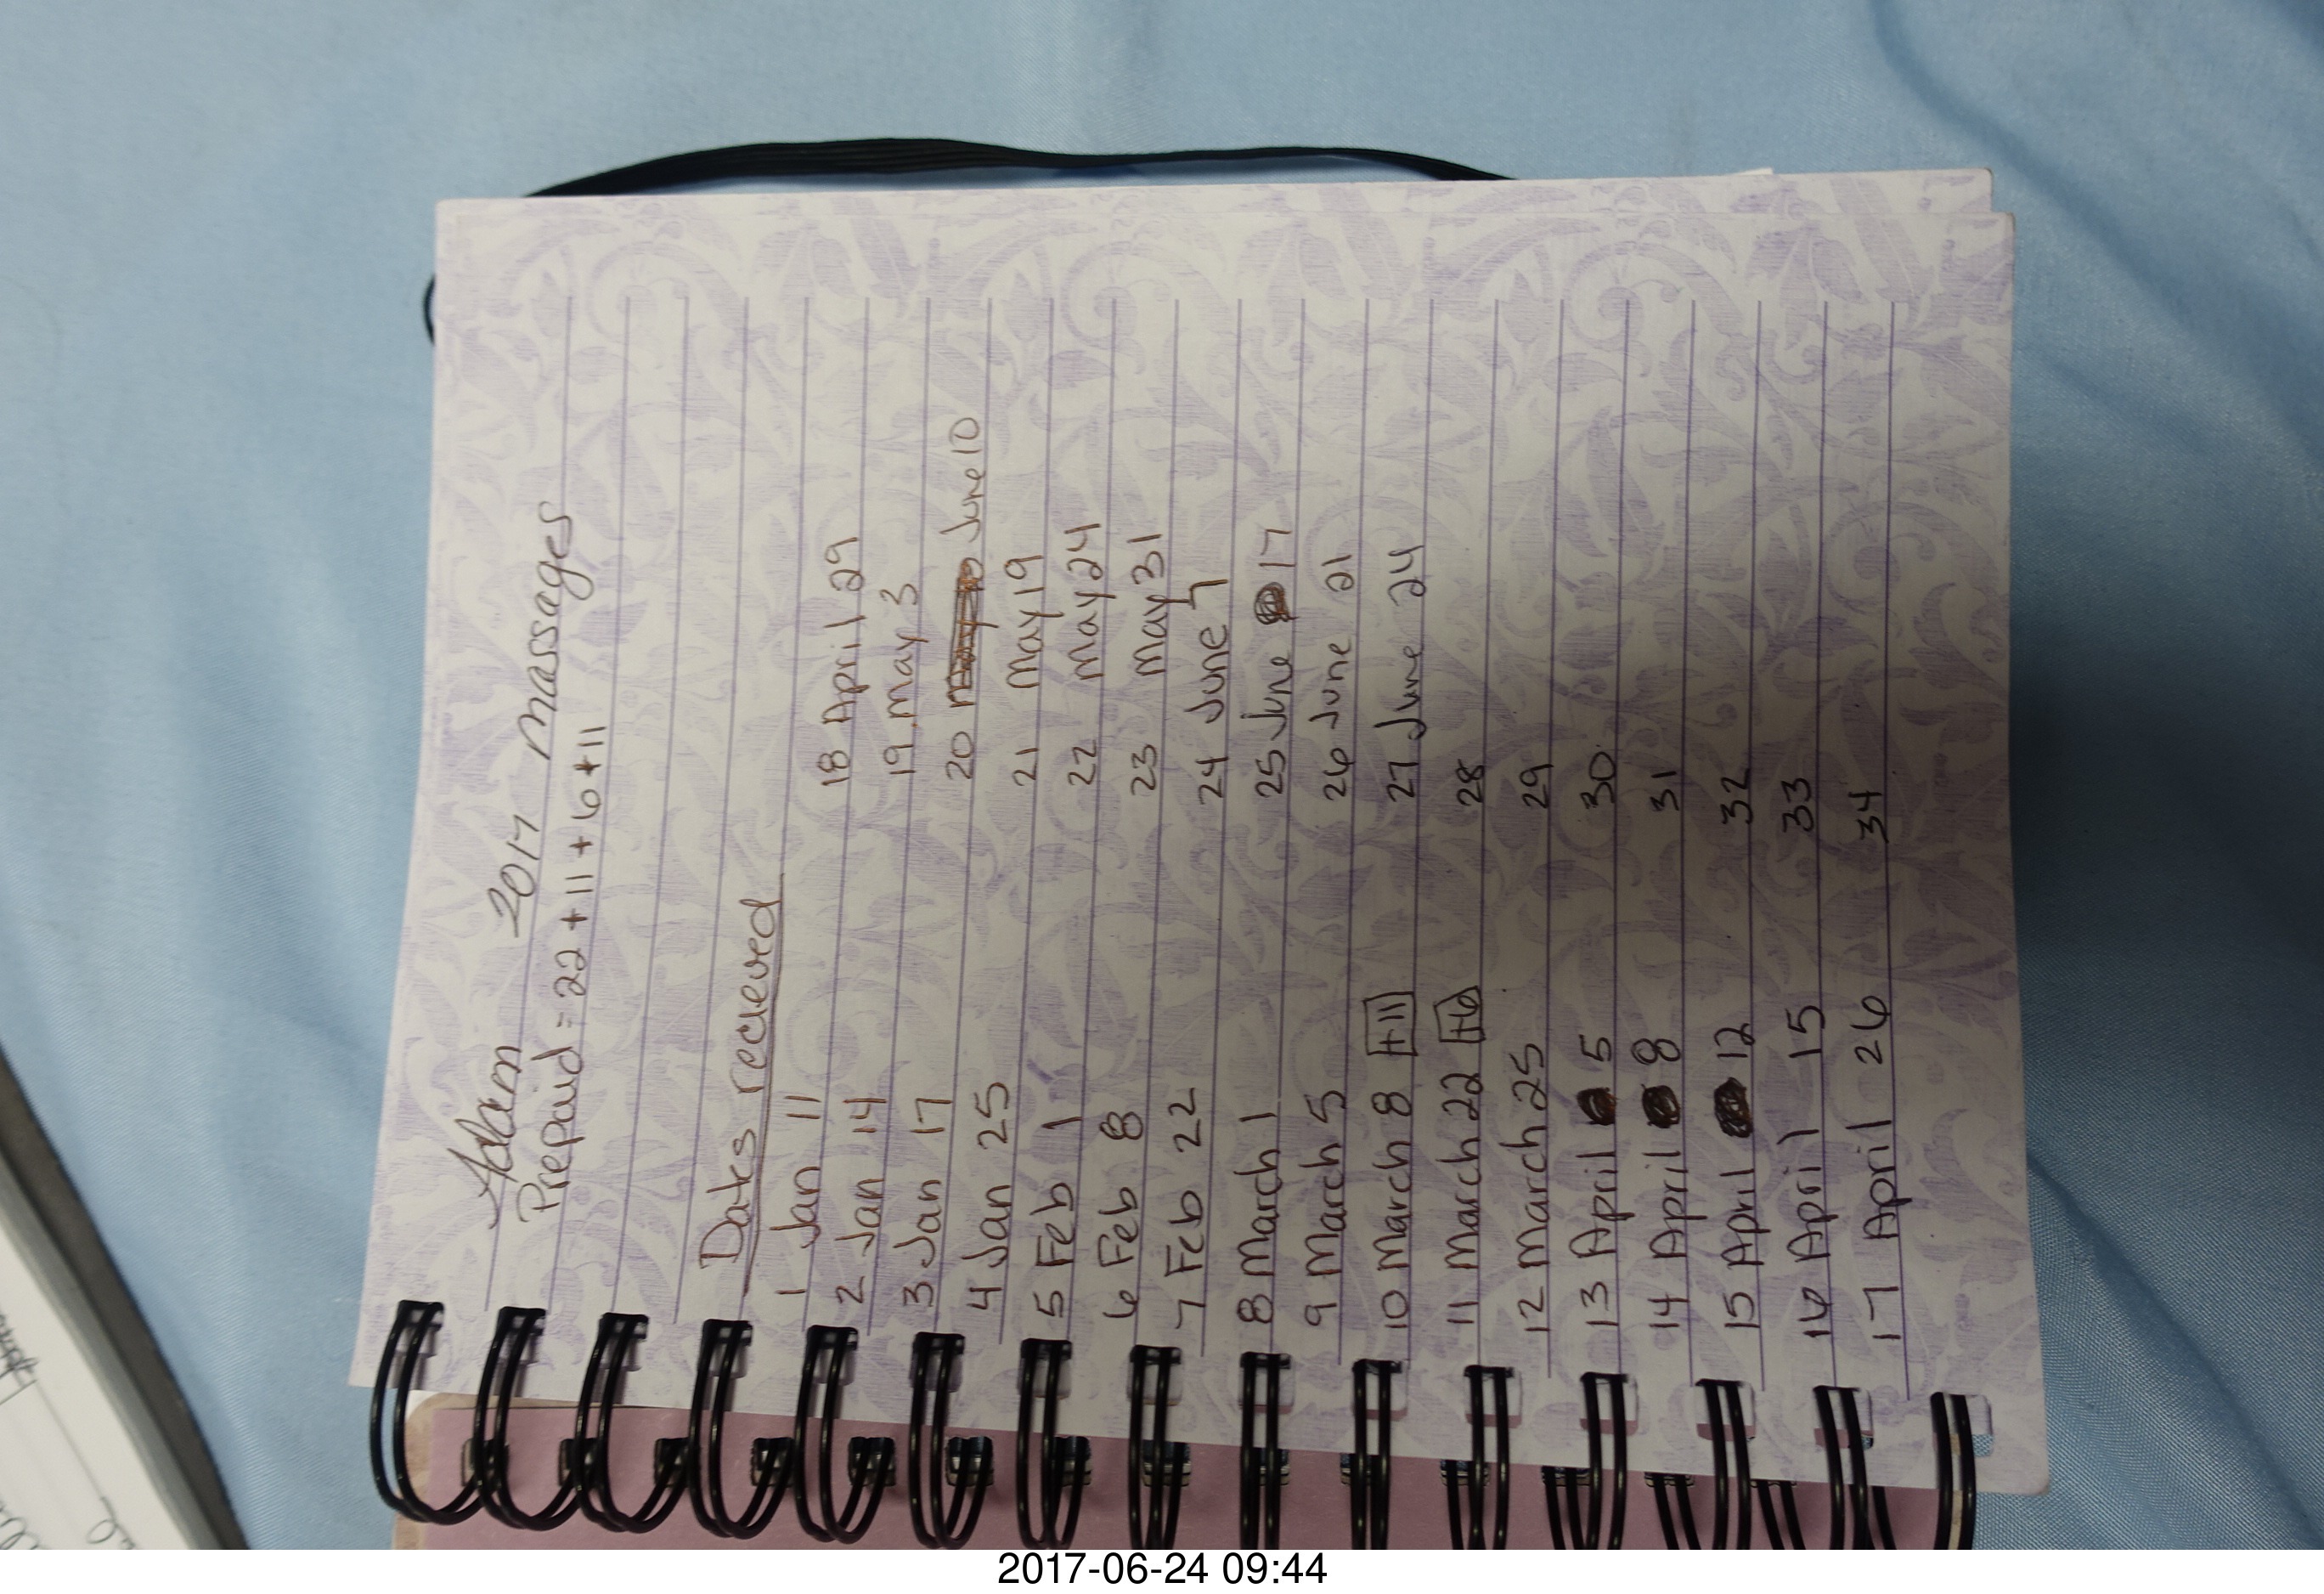 Adam 2017 Massages
Prepaid = 22 + 11 + 6 + 11
Dates recieved
1 Jan 11
2 Jan 14
3 Jan 17
4 Jan 25
5 Feb 1
6 Feb 8
7 Feb 22
8 March 1
9 March 5
10 March 8 +11
11 March 22 +6
12 March 25
13 April 5
14 April 8
15 April 12
16 April 15
17 April 26
18 April 29
19 May 3
20 June 10
21 May 19
22 May 24
23 May 31
24 June 7
25 June 17
26 June 21
27 June 24
28
29
30
31
32
33
34
2017-06-24 09:44